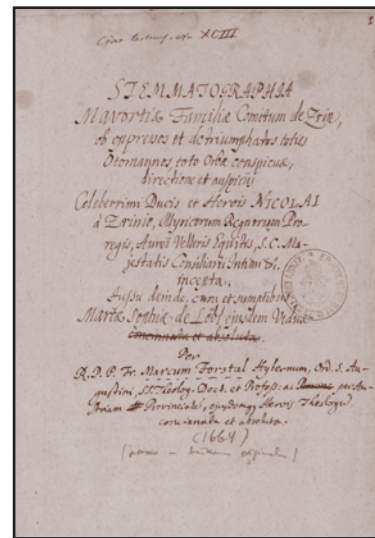 XCIII
1
STEMMATOGRAPHIA
Mavortiæ Familiæ Comitum de Zrin,
ob oppressos et detriumphatos toties
Otomannos, toto Orbe conspicuæ,
directione et auspiciis
Celeberrimi Ducis et Herois NICOLAI
à Zrinio, Illyricorum Regnorum Pro-
regis, Aurei Velleris Equitis, S.C. Ma-
jestatis Consiliarii Intimi &c.
incepta.
Jussu deinde, cura et sumptibus
Mariæ Sophiæ de Lobl ejusdem Viduæ
concinnata et absoluta.
Per
R.P.P. Fr. Marcum Forstal Hybernum, Ord. S. Au-
gustini, SS. Theolog. Doct. et Professorem per Au-
striam Provincialem, ejusdemq. Herois Theologum
concinnata et absoluta.
(1664)